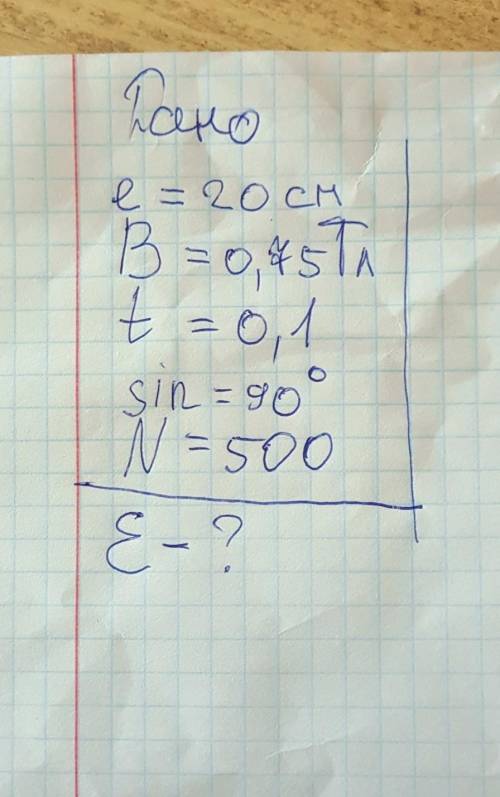 Дано
l = 20 см
B = 0,75 Тл
t = 0,1
sin = 90°
N = 500
Ɛ - ?